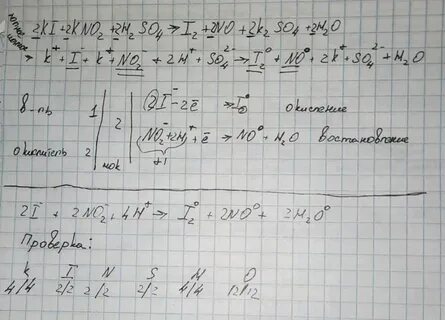 2KI+2KNO₂+2H₂SO₄→I₂+2NO+2K₂SO₄+2H₂O
K⁺+I⁻+K⁺+NO₂⁻+2H⁺+SO₄²⁻→I₂⁰+NO⁰+2K⁺+SO₄²⁻+H₂O
в-ль 1 2 2I⁻-2ē→I₂⁰ окисление
окислитель 2 NO₂⁻+2H⁺+ē→NO⁰+H₂O востановление
+1
нок
2I⁻+2NO₂⁻+4H⁺→I₂⁰+2NO⁰+2H₂O⁰
Проверка:
K I N S H O
4/4 2/2 2/2 2/2 4/4 12/12